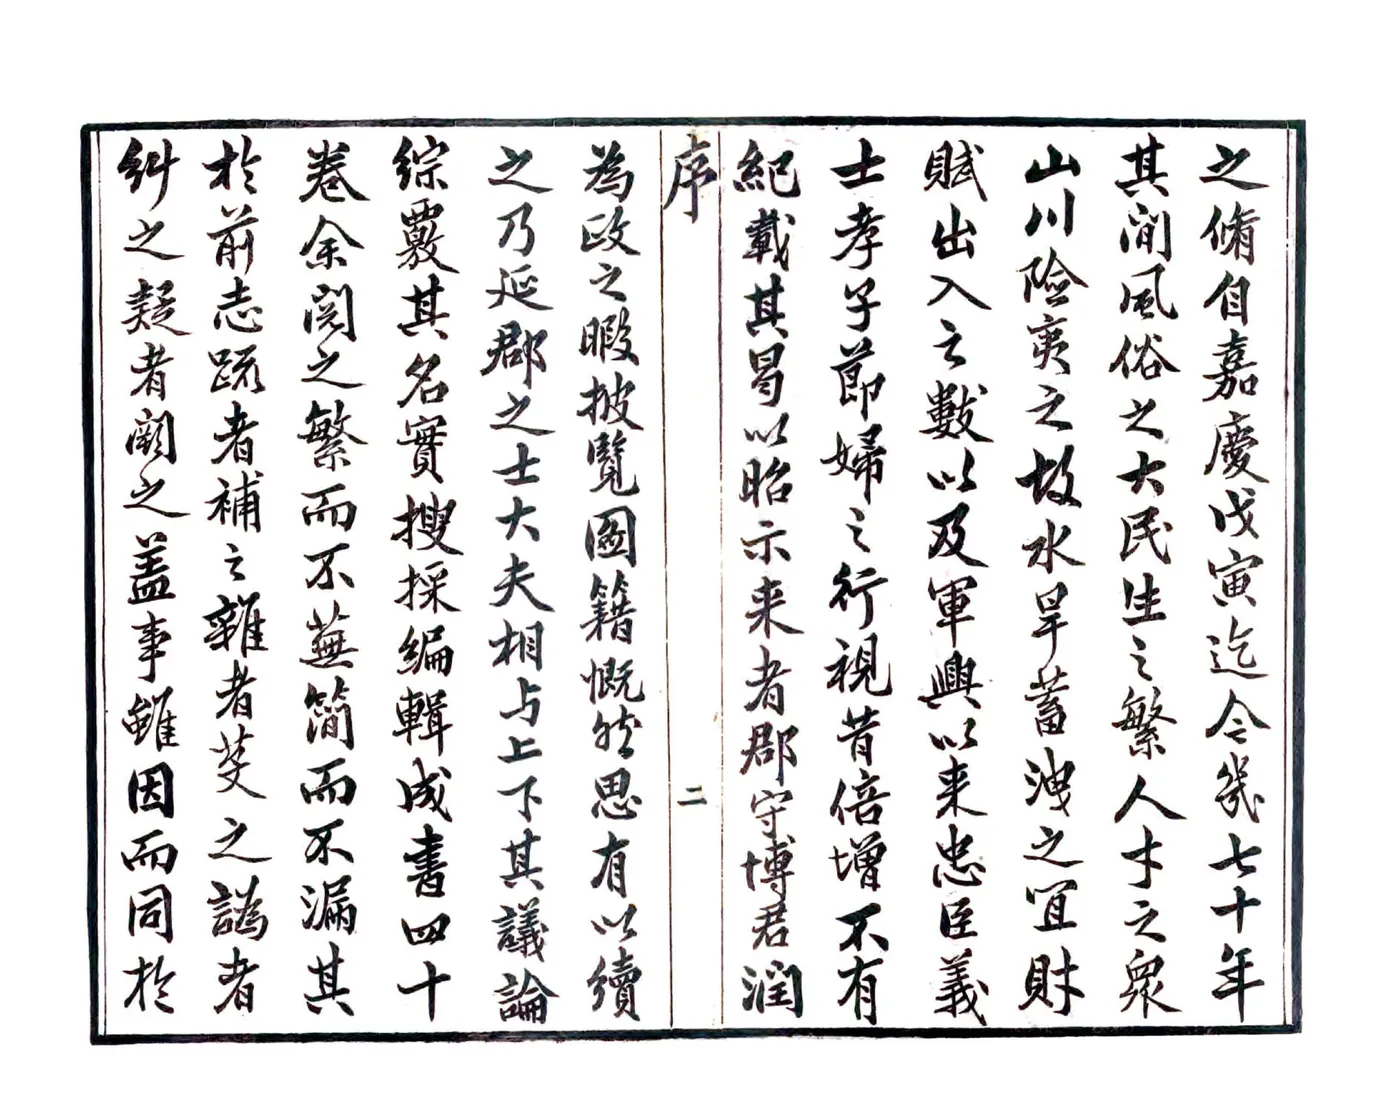 之脩自嘉慶戊寅迄今幾七十年
其間風俗之大民生之繁人才之衆
山川險夷之故水旱蓄洩之宜財
賦出入之數以及軍興以来忠臣義
士孝子節婦之行視昔倍增不有
紀載其曷以昭示来者郡守博君润
序
二
為政之暇披覽圖籍慨然思有以續
之乃延郡之士大夫相与上下其議論
綜覈其名實搜採編輯成書四十
卷余閱之繁而不蕪簡而不漏其
於前志疏者補之雜者芟之譌者
糾之疑者闕之盖事雖因而同於